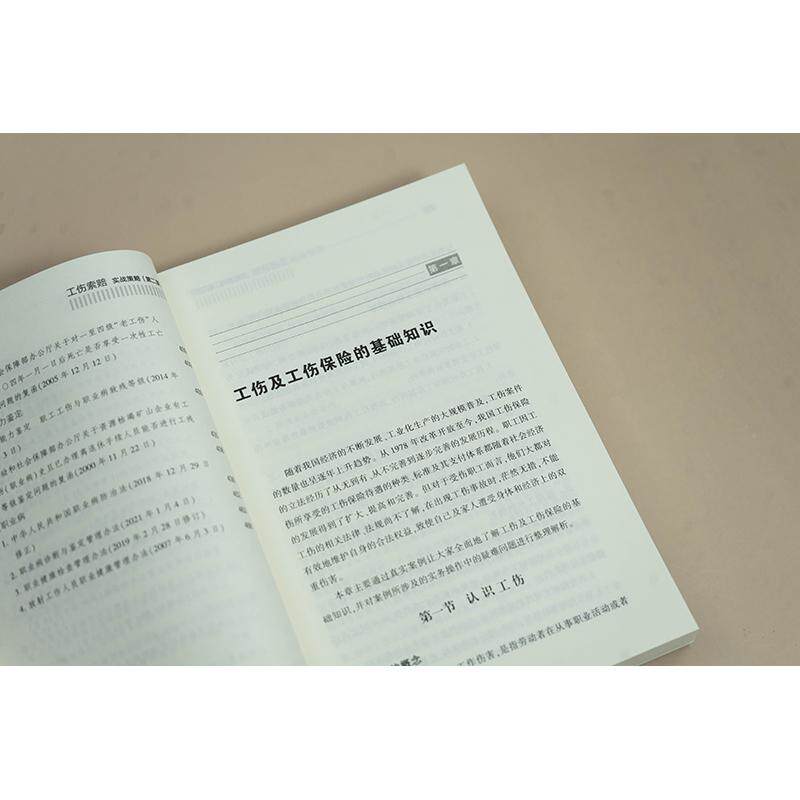 工伤索赔 实战策略(第二
会保障部办公厅关于对一至四级“老工伤”人
〇四年一月一日后死亡是否享受一次性工亡
问题的复函(2005年12月12日)
力鉴定
能力鉴定 职工工伤与职业病致残等级(2014年
3日)
动和社会保障部办公厅关于
矿山企业有工
伤(职业病)史且已办理离退休手续人员能否进行工残
等级鉴定问题的复函(2000年11月22日)
职业病
1.中华人民共和国职业病防治法(2018年12月29日
修正)
2.职业病诊断与鉴定管理办法(2021年1月4日)
3.职业健康检查管理办法(2019年2月28日修订)
4.放射工作人员职业健康管理办法(2007年6月3日)
第一章
工伤及工伤保险的基础知识
随着我国经济的不断发展,工业化生产的大规模普及,工伤案件
的数量也呈逐年上升趋势。从1978年改革开放至今,我国工伤保险
的立法经历了从无到有、从不完善到逐步完善的发展历程。职工因工
伤所享受的工伤保险待遇的种类、标准及其支付体系都随着社会经济
的发展得到了扩大、提高和完善。但对于受伤职工而言,他们大都对
工伤的相关法律、法规尚不了解,在出现工伤事故时,茫然无措,不能
有效地维护自身的合法权益,致使自己及家人遭受身体和经济上的双
重伤害。
本章主要通过真实案例让大家全面地了解工伤及工伤保险的基
础知识,并对案例所涉及的实务操作中的疑难问题进行整理解析。
第一节 认识工伤
概念
工作伤害,是指劳动者在从事职业活动或者